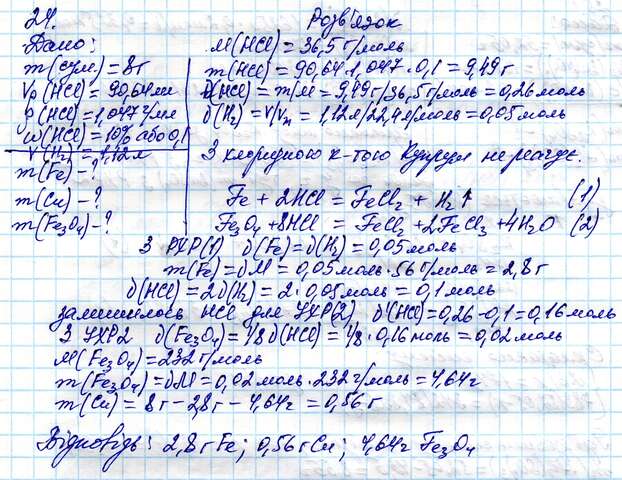 24.
Розв'язок
Дано:
m(сум.) = 8г
Vр(HCl) = 90,64мл
ρ(HCl) = 1,047 г/мл
ω(HCl) = 10% або 0,1
V(H₂) = 1,12л
m(Fe) - ?
m(Cu) - ?
m(Fe₃O₄) - ?
M(HCl) = 36,5 г/моль
m(HCl) = 90,64·1,047·0,1 = 9,49г
ϑ(HCl) = m/M = 9,49г/36,5г/моль = 0,26 моль
ϑ(H₂) = V/Vₘ = 1,12л/22,4л/моль = 0,05 моль
З хлоридною к-тою Купрум не реагує.
Fe + 2HCl = FeCl₂ + H₂↑ (1)
Fe₃O₄ + 8HCl = FeCl₂ + 2FeCl₃ + 4H₂O (2)
З РХР(1) ϑ(Fe) = ϑ(H₂) = 0,05 моль
m(Fe) = ϑM = 0,05 моль·56 г/моль = 2,8 г
ϑ(HCl) = 2ϑ(H₂) = 2·0,05 моль = 0,1 моль
залишилось HCl для УХР(2) ϑ'(HCl) = 0,26 - 0,1 = 0,16 моль
З УХР2 ϑ(Fe₃O₄) = 1/8 ϑ(HCl) = 1/8 · 0,16 моль = 0,02 моль
M(Fe₃O₄) = 232 г/моль
m(Fe₃O₄) = ϑM = 0,02 моль·232 г/моль = 4,64г
m(Cu) = 8г - 2,8г - 4,64г = 0,56 г
Відповідь: 2,8 г Fe; 0,56г Cu; 4,64г Fe₃O₄